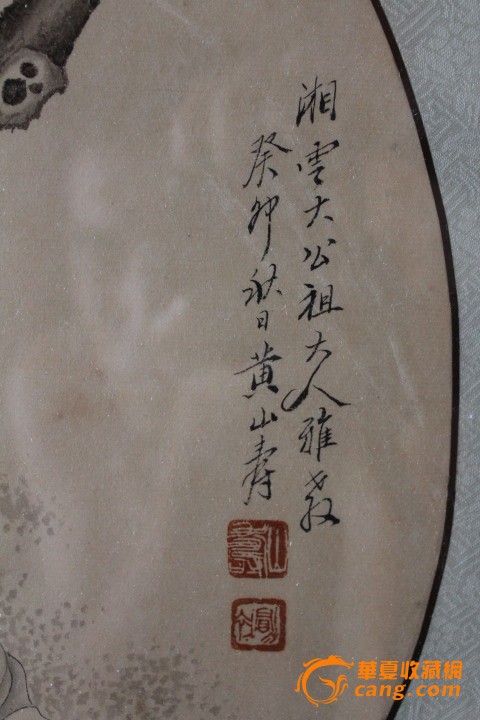 湘雲大公祖大人雅教
癸卯秋日黄山壽
華夏收藏網
cang.com